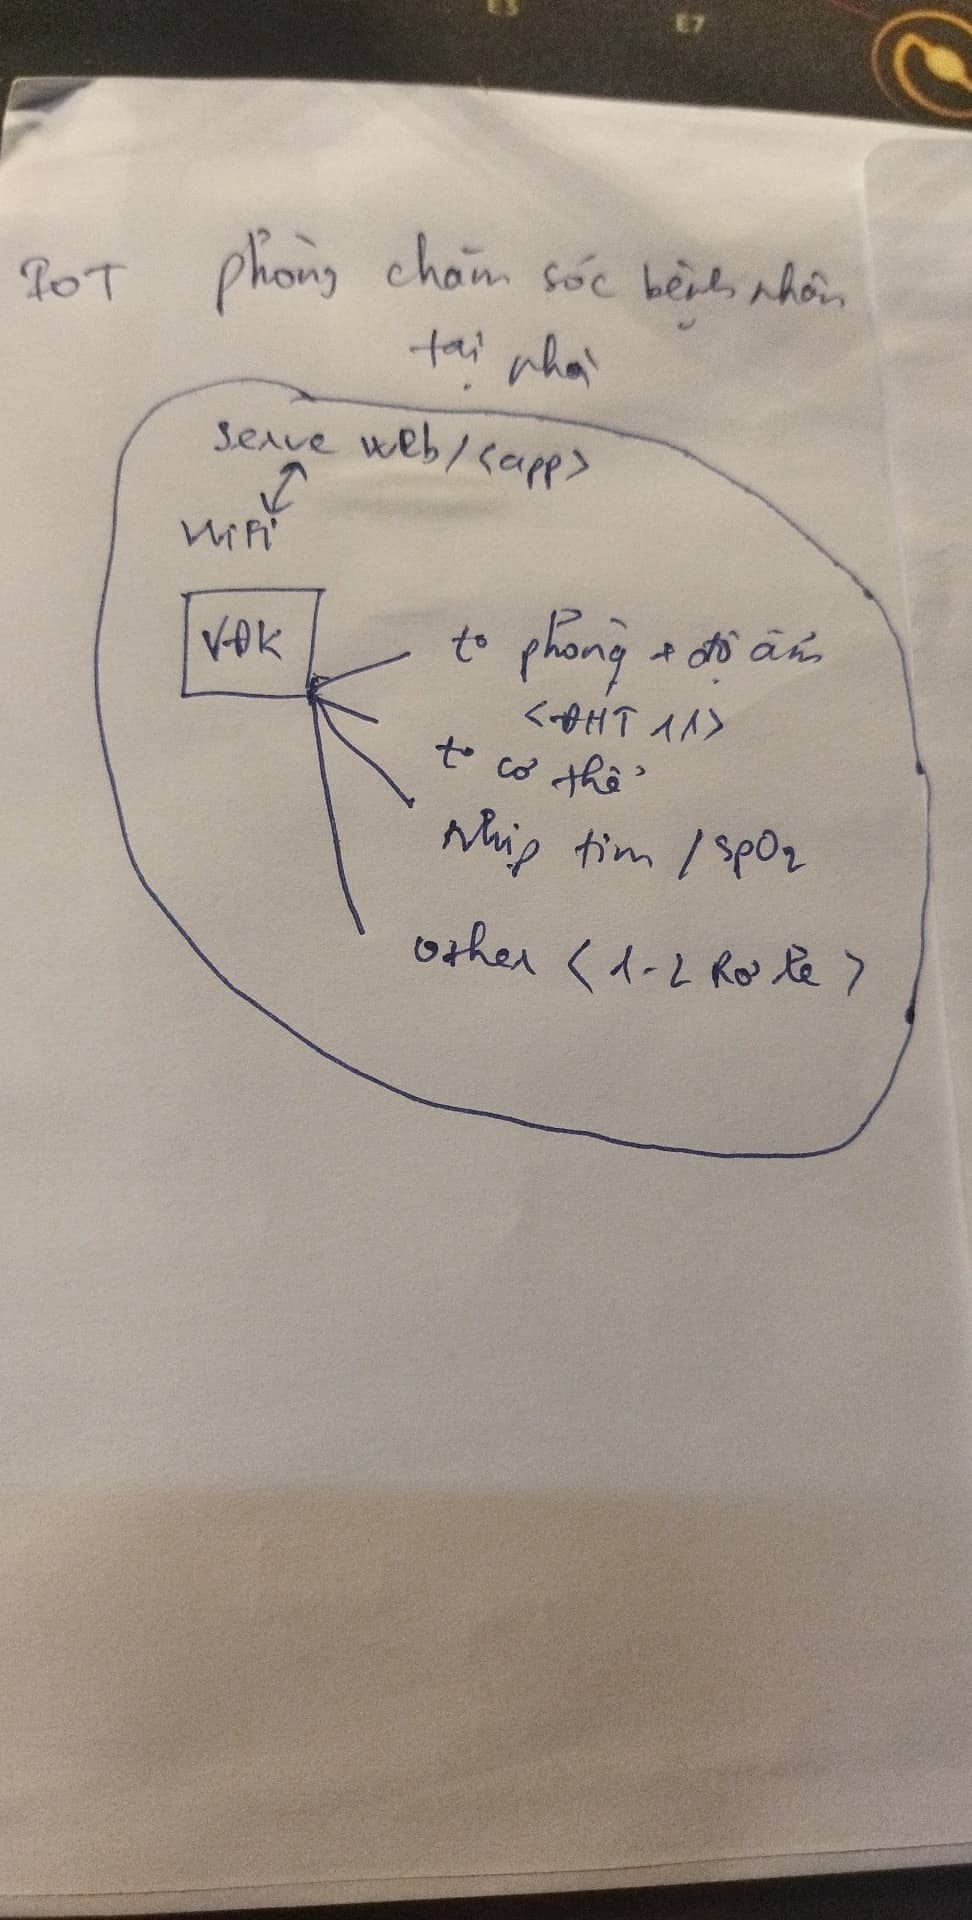 E3
E7
IOT phòng chăm sóc bệnh nhân
tại nhà
serve web/<app>
WiFi
VĐK
to phòng + độ ẩm
<ĐHT 11>
to cơ thể
nhịp tim / SpO2
other < 1-2 Rơ le >